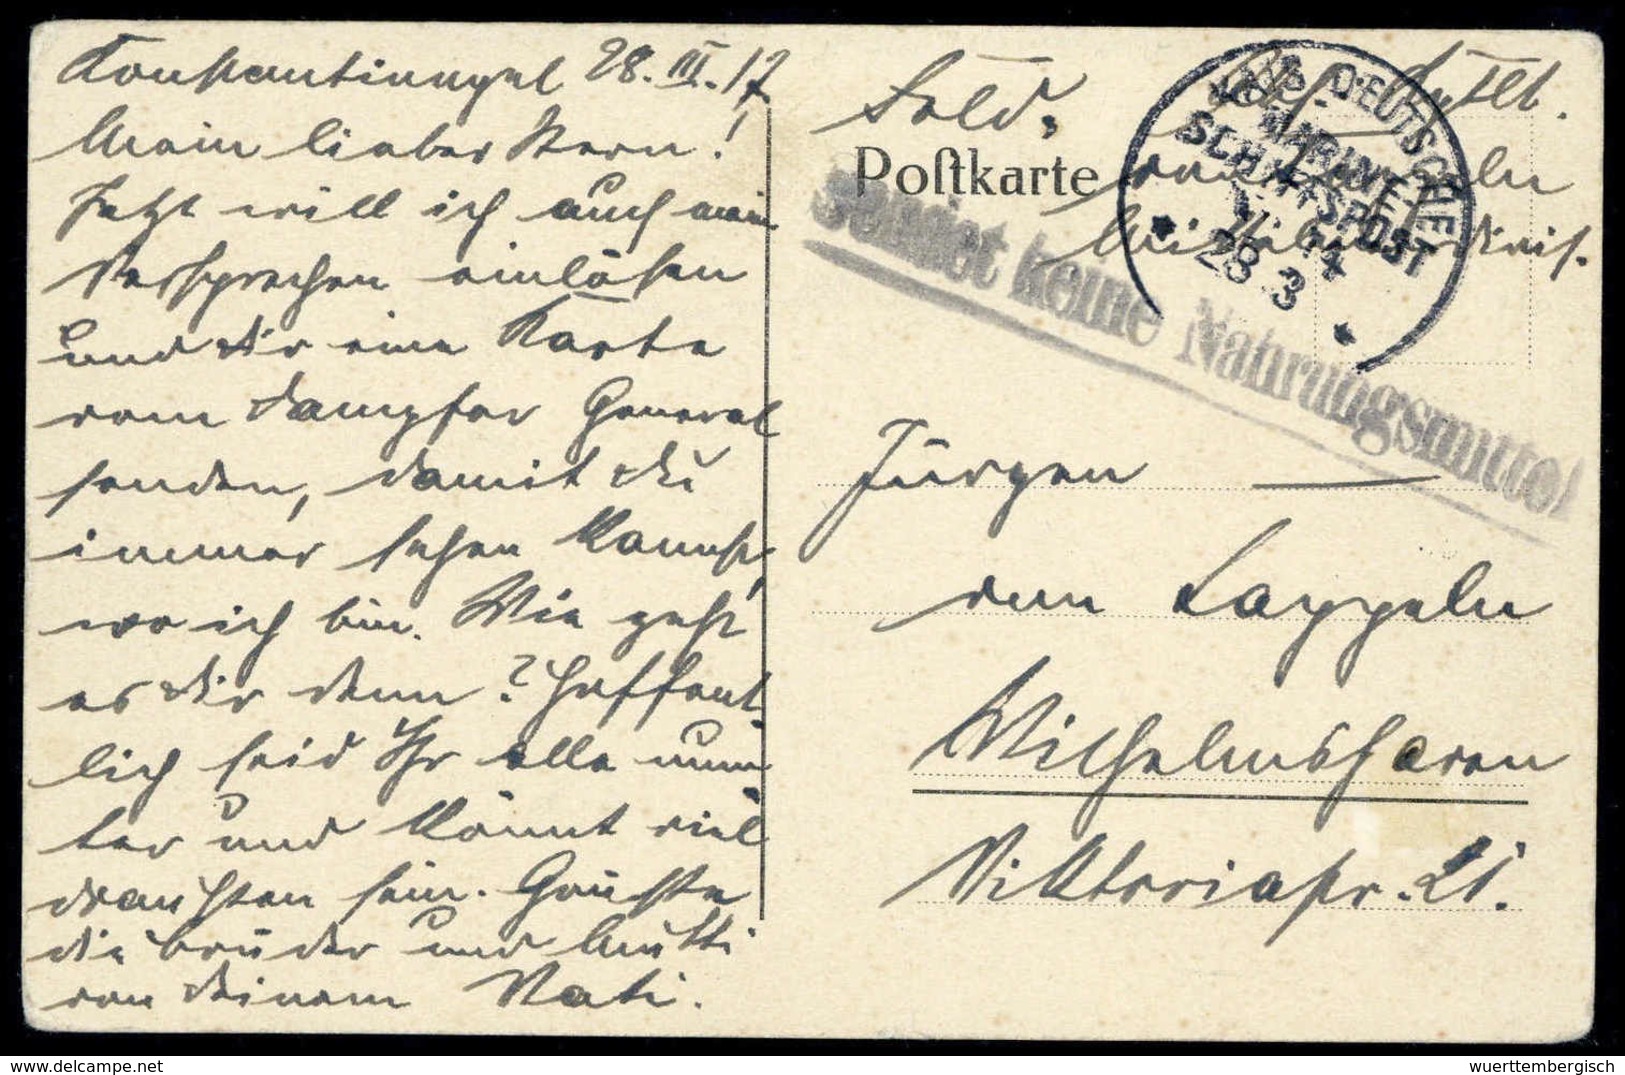 Konstantinopel 28.III.17.
Mein lieber Stern!
Jetzt will ich auch mein
Versprechen einlösen
und dir eine Karte
vom Dampfer General
senden, damit du
immer sehen kannst,
wo ich bin. Wie geht
es dir denn? Hoffent-
lich seid Ihr alle mun-
ter und könnt viel
draußen sein. Grüße
die Brüder und Mutti
von deinem Vati.
Feld.
Postkarte
KAIS. DEUTSCHE
MARINE-
SCHIFFSPOST
28 3
Sendet keine Nahrungsmittel
Jürgen
von Cappeln
Wilhelmshaven
Viktoriastr. 21.
wuerttembergisch